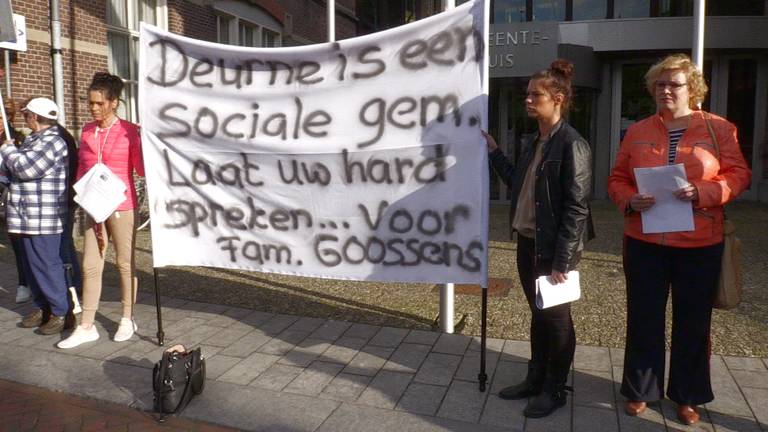 EENTE-
UIS
Deurne is een
sociale gem.
Laat uw hard
spreken... voor
Fam. GOOSSENS